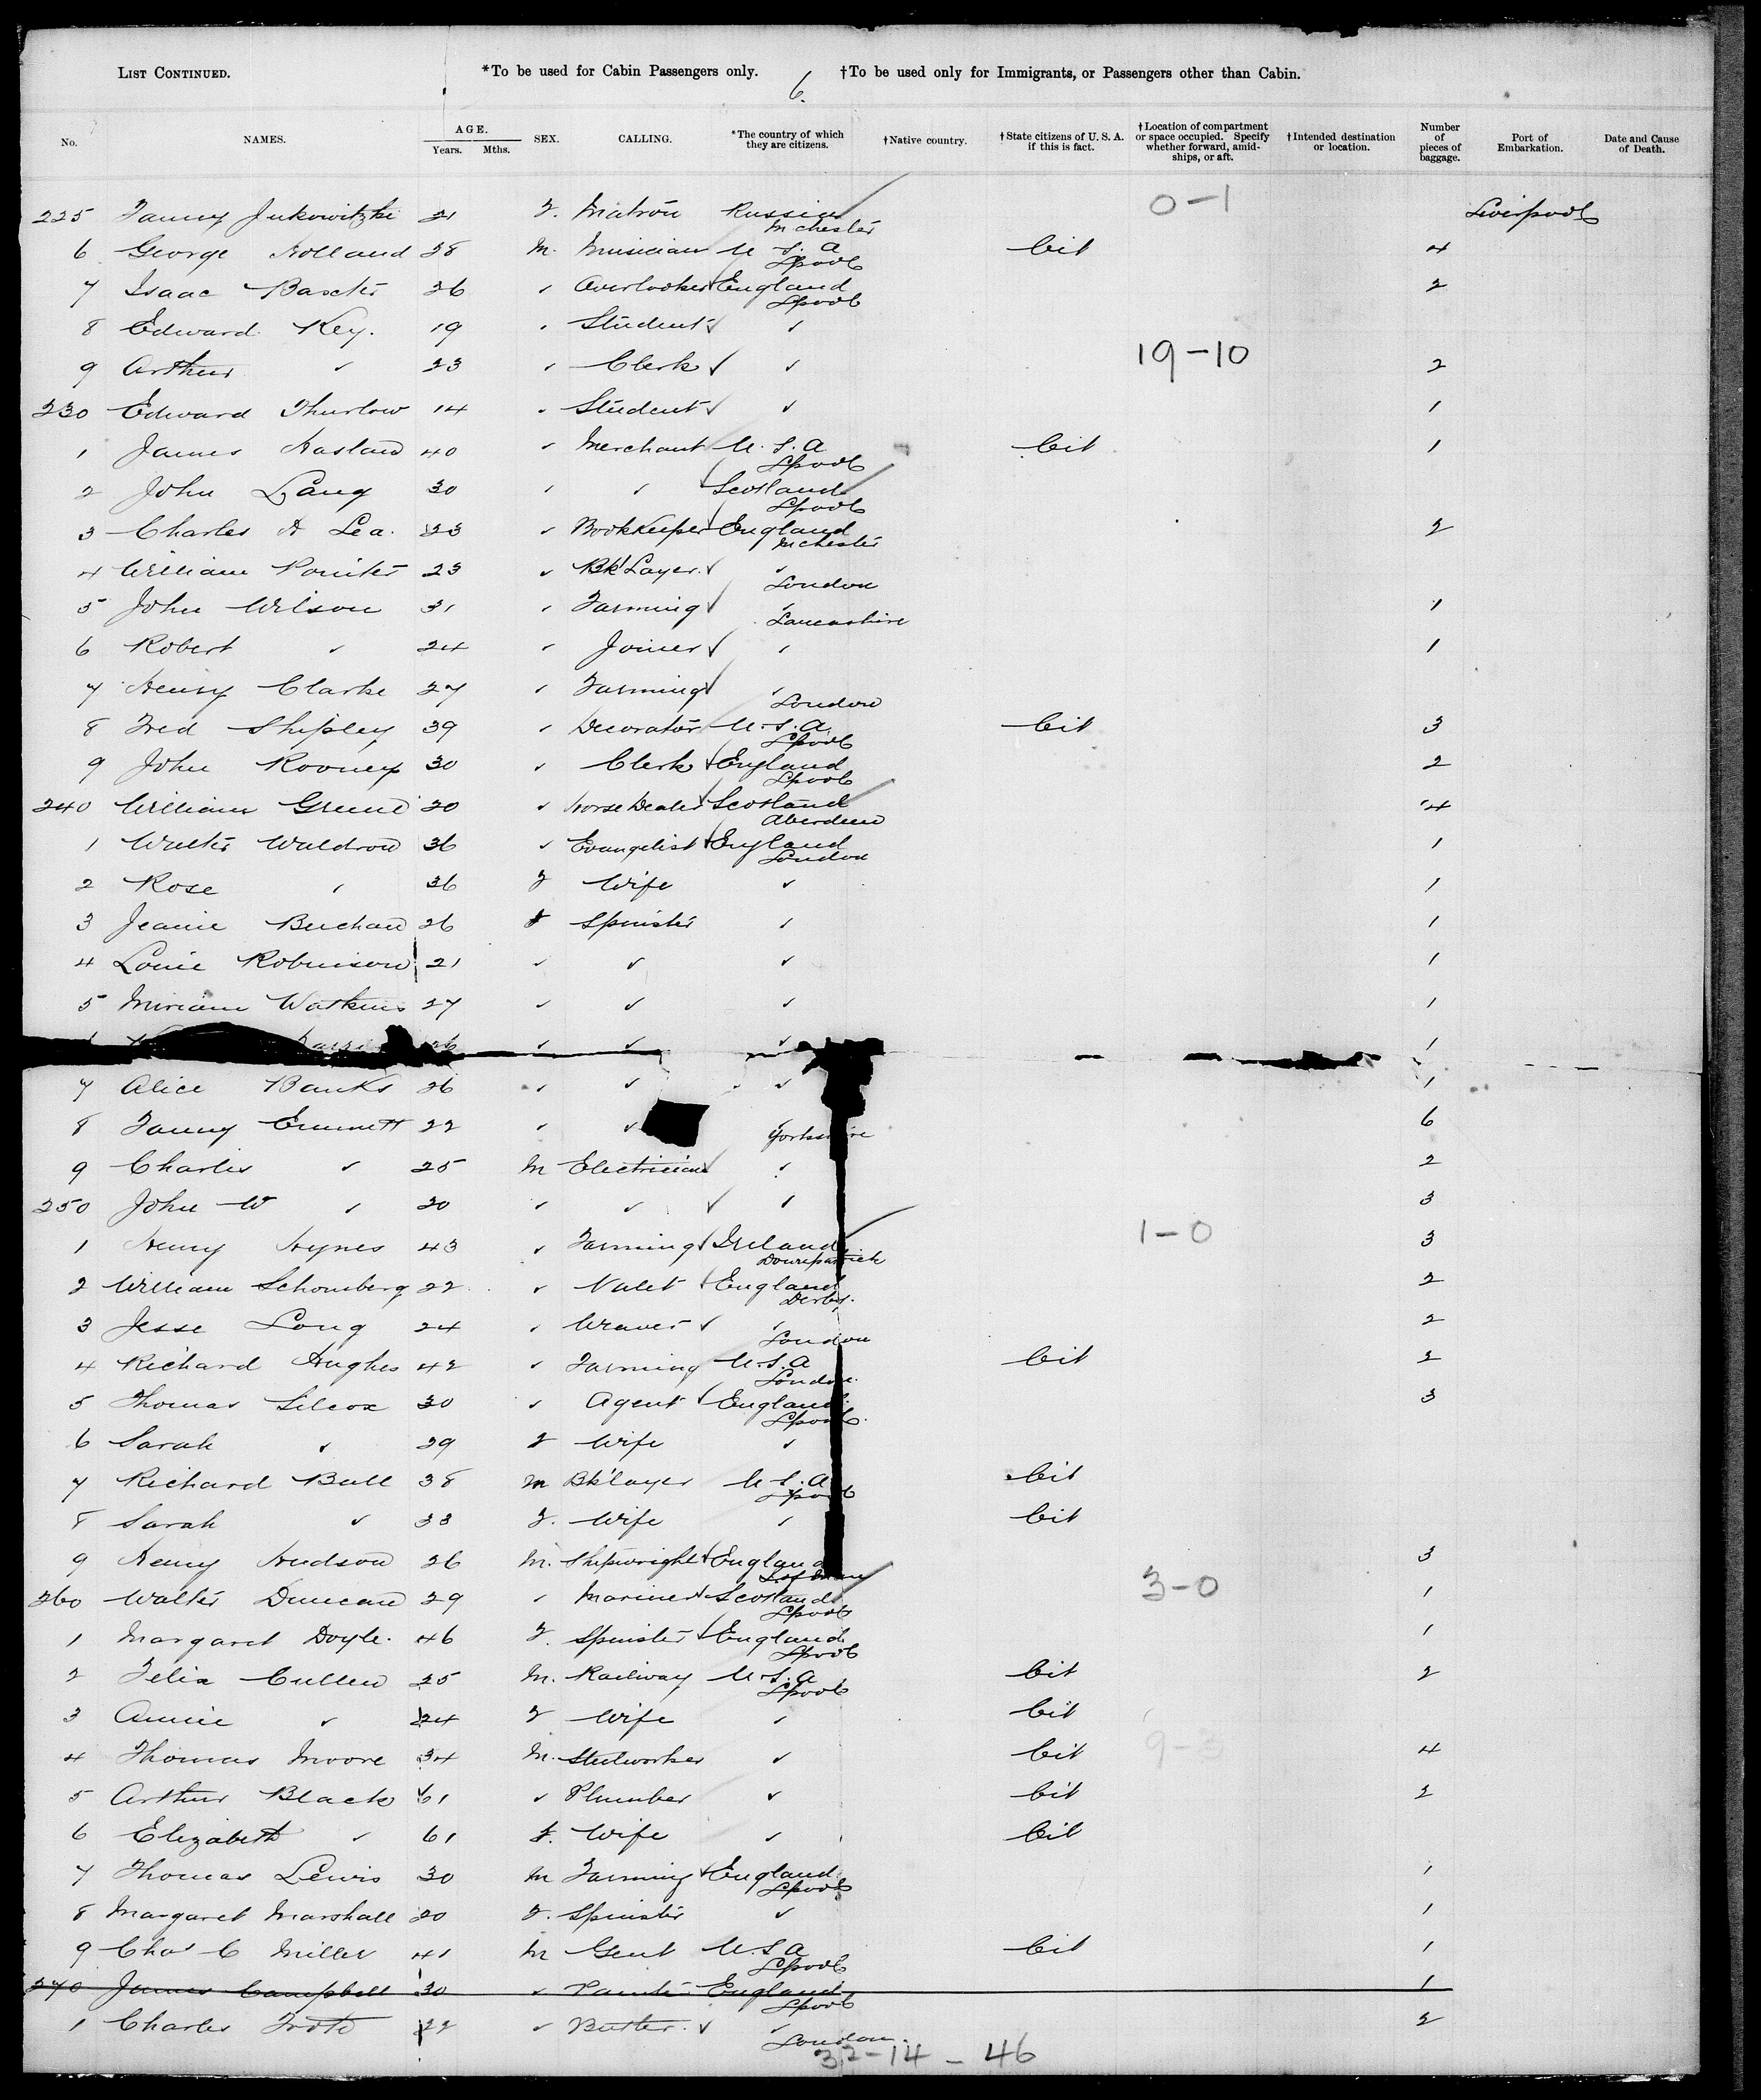 LIST CONTINUED. *To be used for Cabin Passengers only. †To be used only for Immigrants, or Passengers other than Cabin.
6.
No. NAMES. AGE. Years. Mths. SEX. CALLING. *The country of which they are citizens. †Native country. †State citizens of U. S. A. if this is fact. †Location of compartment or space occupied. Specify whether forward, amidships, or aft. †Intended destination or location. Number of pieces of baggage. Port of Embarkation. Date and Cause of Death.
225 Fanny Jukowitzki 21 F. Matron Russia Mchester 0-1 Liverpool
6 George Holland 28 M. Musician U.S.A Lpool Cit 4
7 Isaac Baxter 26 " Overlooker England Lpool 2
8 Edward Key. 19 " Student "
9 Arthur " 23 " Clerk " 19-10 2
230 Edward Thurlow 14 " Student " 1
1 James Haslam 40 " Merchant U.S.A Lpool Cit 1
2 John Lang 30 " " Scotland Lpool
3 Charles H Lea. 23 " Bookkeeper England Mchester 2
4 William Pointer 23 " Bk'Layer. " London
5 John Wilson 31 " Farming " Lancashire 1
6 Robert " 24 " Joiner " 1
7 Henry Clarke 27 " Farming " London
8 Fred Shipley 39 " Decorator U.S.A. Lpool Cit 3
9 John Rooney 30 " Clerk England Lpool 2
240 William 20 " Horse Dealer Scotland Aberdeen 4
1 Walter Waldron 36 " Evangelist England London 1
2 Rose " 36 F Wife " 1
3 Jeanie Buchan 26 F Spinster " 1
4 Louie Robinson 21 " " " 1
5 Miriam Watkins 27 " " " 1
26 " " " 1
7 Alice Banks 26 " " " 1
8 Fanny Emmett 22 " " Yorkshire 6
9 Charles " 25 M Electrician " 2
250 John W " 20 " " " 3
1 Henry Hynes 43 " Farming Ireland Downpatrick 1-0 3
2 William Schomberg 22 " Valet England Derby. 2
3 Jesse Long 24 " Weaver " London 2
4 Richard Hughes 42 " Farming U.S.A London. Cit 2
5 Thomas Silcox 30 " Agent England Lpool. 3
6 Sarah " 29 F Wife "
7 Richard Bull 38 M Bk'layer U.S.A Lpool Cit
8 Sarah " 33 F. Wife " Cit
9 Henry Hudson 26 M. Shipwright England I. of Man 3
260 Walter Duncan 29 " Mariner Scotland Lpool 3-0 1
1 Margaret Doyle. 46 F. Spinster England Lpool 1
2 Felix Cullen 25 M. Railway U.S.A. Lpool Cit 2
3 Annie " 24 F Wife " Cit
4 Thomas Moore 34 M. Steelworker " Cit 9-3 4
5 Arthur Black 61 " Plumber " Cit 2
6 Elizabeth " 61 F. Wife " Cit
7 Thomas Lewis 30 M Farming England Lpool 1
8 Margaret Marshall 20 F. Spinster " 1
9 Chas C Miller 41 M Gent U.S.A Lpool Cit 1
270 James Campbell 30 " Painter England Lpool 1
1 Charles 22 " Butler. " London. 2
32-14-46